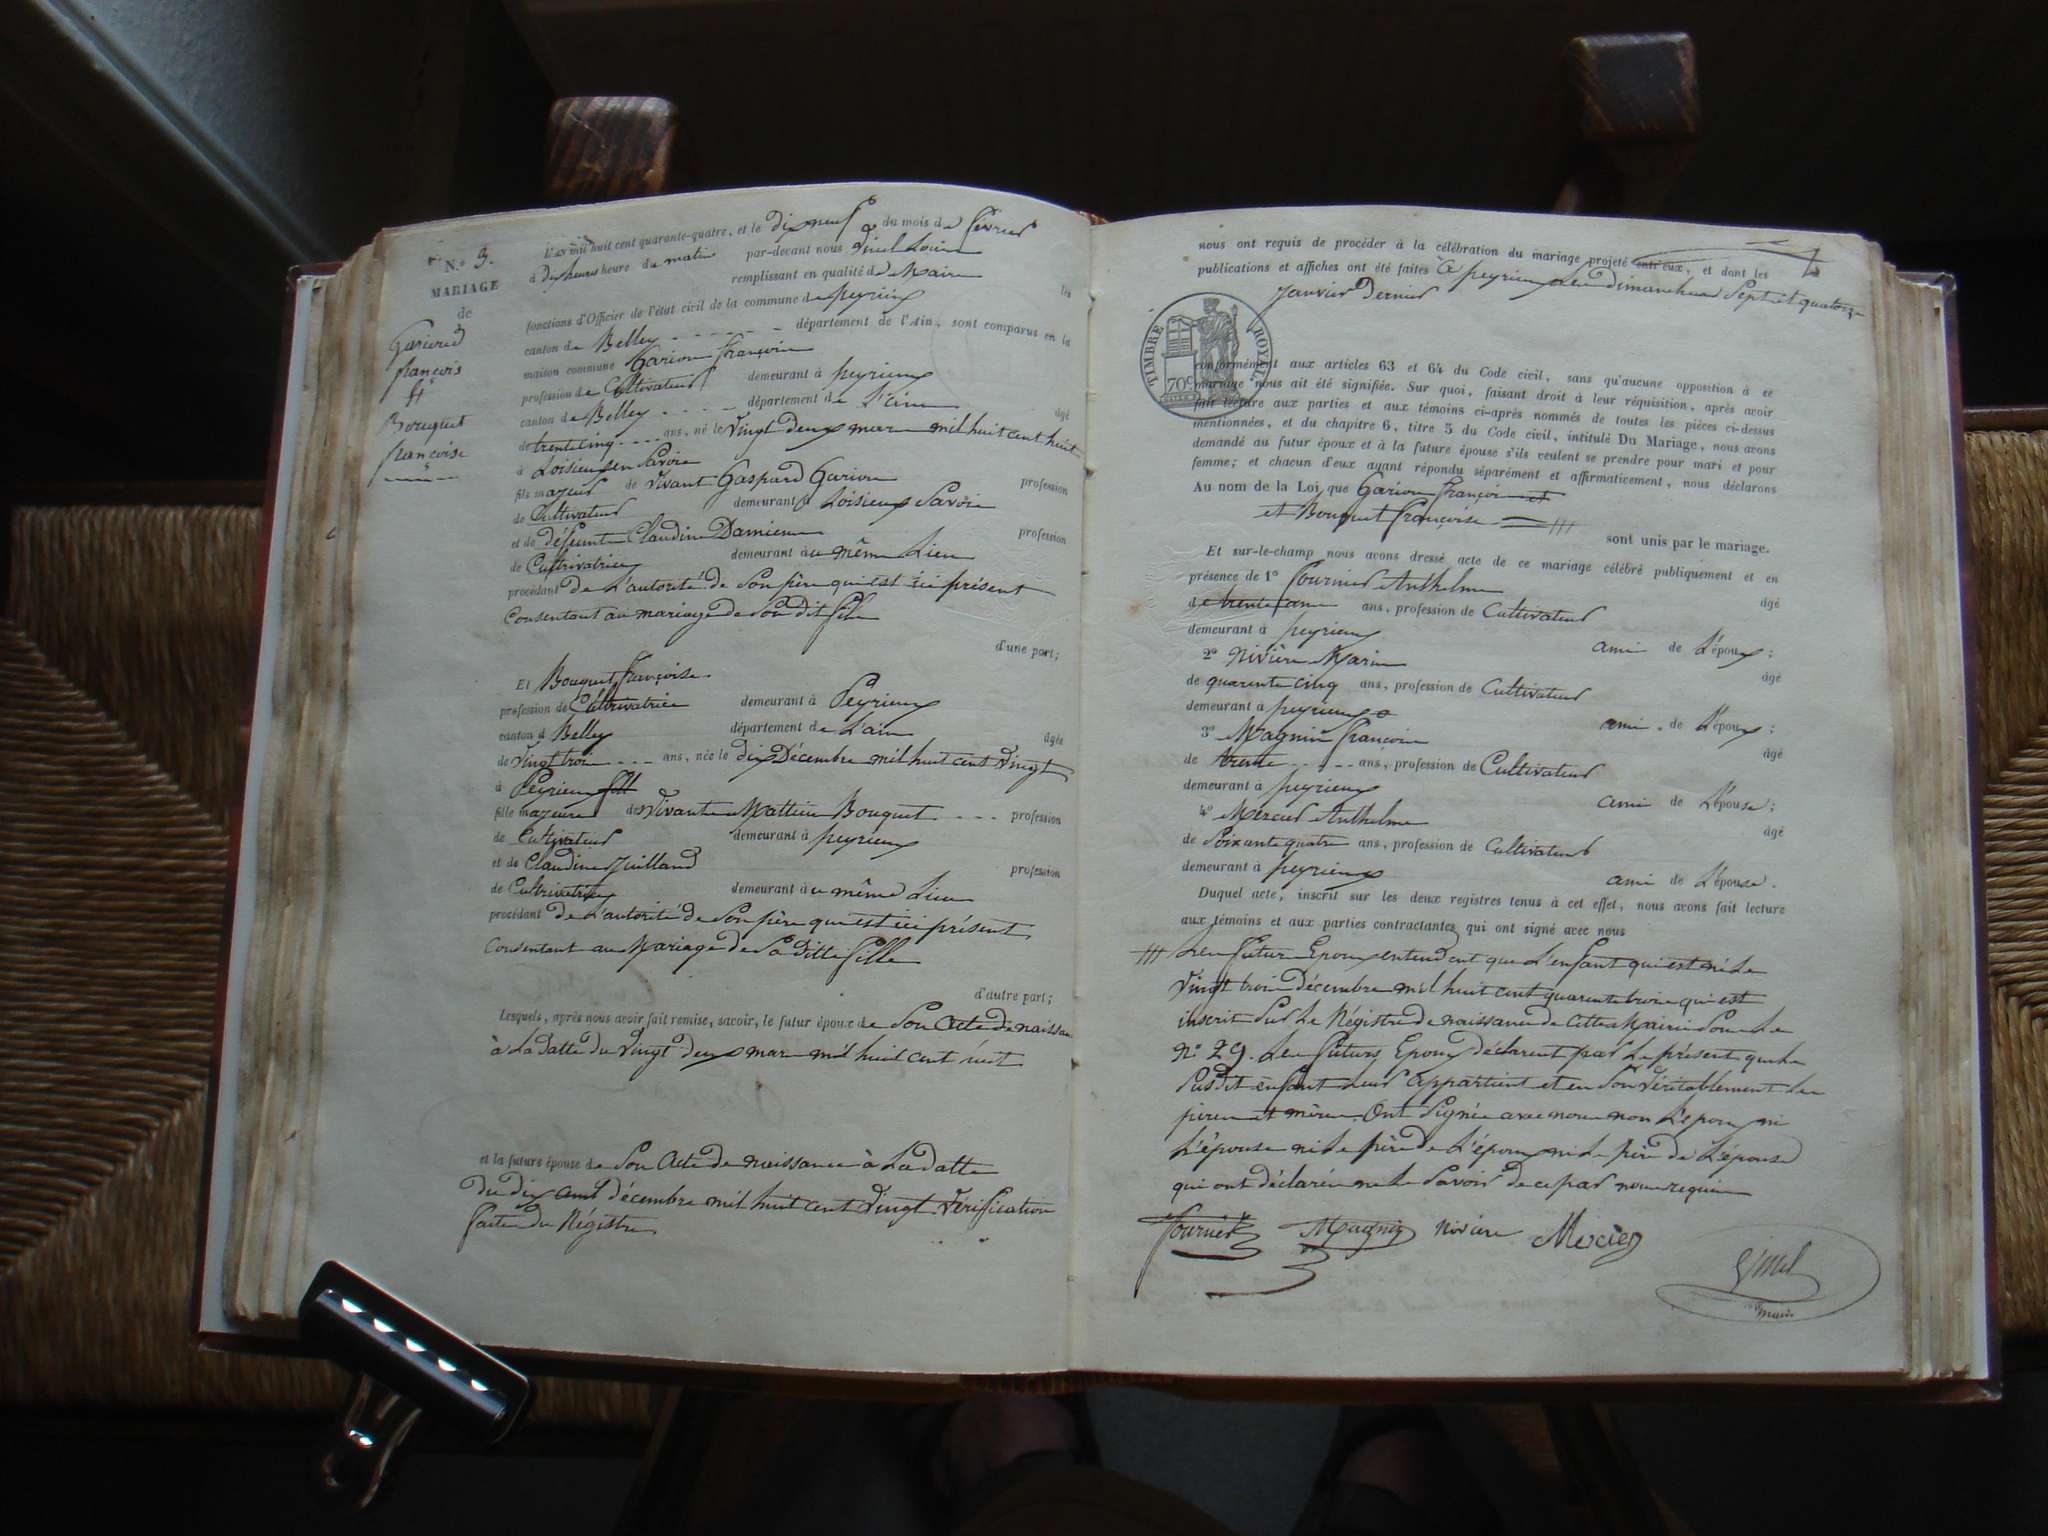 N.º 3.
MARIAGE
de
Gariond
françois
et
Bouquet
françoise
L'an mil huit cent quarante-quatre, et le dix neuf du mois de février
à dix heures heure du matin par-devant nous
remplissant en qualité de Maire les
fonctions d'Officier de l'état civil de la commune de peyrieux
canton de Belley - - - - - département de l'Ain, sont comparus en la
maison commune Garion françois
profession de Cultivateur demeurant à peyrieux
canton de Belley - - - - département de L'ain âgé
de trente cinq - - - - ans, né le Vingt deux mars mil huit cent huit
à Loisieux en Savoie
fils majeur de vivant Gaspard Garion profession
de Cultivateur demeurant à Loisieux Savoie
et de défunte Claudine Damien profession
de Cultivatrice demeurant à u même Lieu
procédant de L'autorité de Son père qui est ici présent
Consentant au mariage de Son dit fils
d'une part;
Et Bouquet françoise.
profession de Cultivatrice demeurant à Peyrieux
canton d Belley département de L'ain âgée
de Vingt trois - - - ans, née le dix Décembre mil huit cent vingt
à Peyrieux fill
fille majeure de Vivant Mattieu Bouquet - - - - profession
de Cultivateur demeurant à peyrieux
et de Claudine Juilland profession
de Cultivatrice demeurant à u même Lieu
procédant de L'autorité de Son père qui est ici présent
Consentant au Mariage de Sa ditte fille
d'autre part;
Lesquels, après nous avoir fait remise, savoir, le futur époux de Son Acte de naissan
à La Datte du Vingt deux mars mil huit cent huit
et la future épouse de Son Acte de naissance à La datte
du dix décembre mil huit cent Vingt Vérification
faite du Régistre
nous ont requis de procéder à la célébration du mariage projeté entr'eux, et dont les
publications et affiches ont été faites à peyrieux les dimanches Sept et quatorze
Janvier Dernier
TIMBRE ROYAL
70 c
conformément aux articles 63 et 64 du Code civil, sans qu'aucune opposition à ce
mariage nous ait été signifiée. Sur quoi, faisant droit à leur réquisition, après avoir
fait lecture aux parties et aux témoins ci-après nommés de toutes les pièces ci-dessus
mentionnées, et du chapitre 6, titre 5 du Code civil, intitulé Du Mariage, nous avons
demandé au futur époux et à la future épouse s'ils veulent se prendre pour mari et pour
femme; et chacun d'eux ayant répondu séparément et affirmativement, nous déclarons
Au nom de la Loi, que Garion françois et
et Bouquet françoise ///
sont unis par le mariage.
Et sur-le-champ nous avons dressé acte de ce mariage célébré publiquement et en
présence de 1º fournier Anthelme âgé
de trente ans, profession de Cultivateur
demeurant à peyrieux ami de L'époux;
2º Nivière Marin âgé
de quarente cinq ans, profession de Cultivateur
demeurant à peyrieux ami de L'époux;
3º Magnin françois âgé
de trente - - - - ans, profession de Cultivateur
demeurant à peyrieux ami de L'épouse;
4º Mercier Anthelme âgé
de Soixante quatre ans, profession de Cultivateur
demeurant à peyrieux ami de L'épouse.
Duquel acte, inscrit sur les deux registres tenus à cet effet, nous avons fait lecture
aux témoins et aux parties contractantes qui ont signé avec nous
/// Les futur Epoux entendent que L'enfant qui est né Le
Vingt trois Décembre mil huit cent quarente trois qui est
inscrit Sur Le Régistre de naissance de Cette Mairie Sous Le
Nº 29. Les futurs Epoux déclarent par Le présent que Le
Susdit enfant Leur appartient et en Son Véritablement Les
pères et mères. Ont Signée avec nous non L'époux ni
L'épouse ni Le père de L'époux ni Le père de L'épouse
qui ont déclarés ne Le Savoir de ce par nous requis
fournier Magnin Nivière Mercier
maire